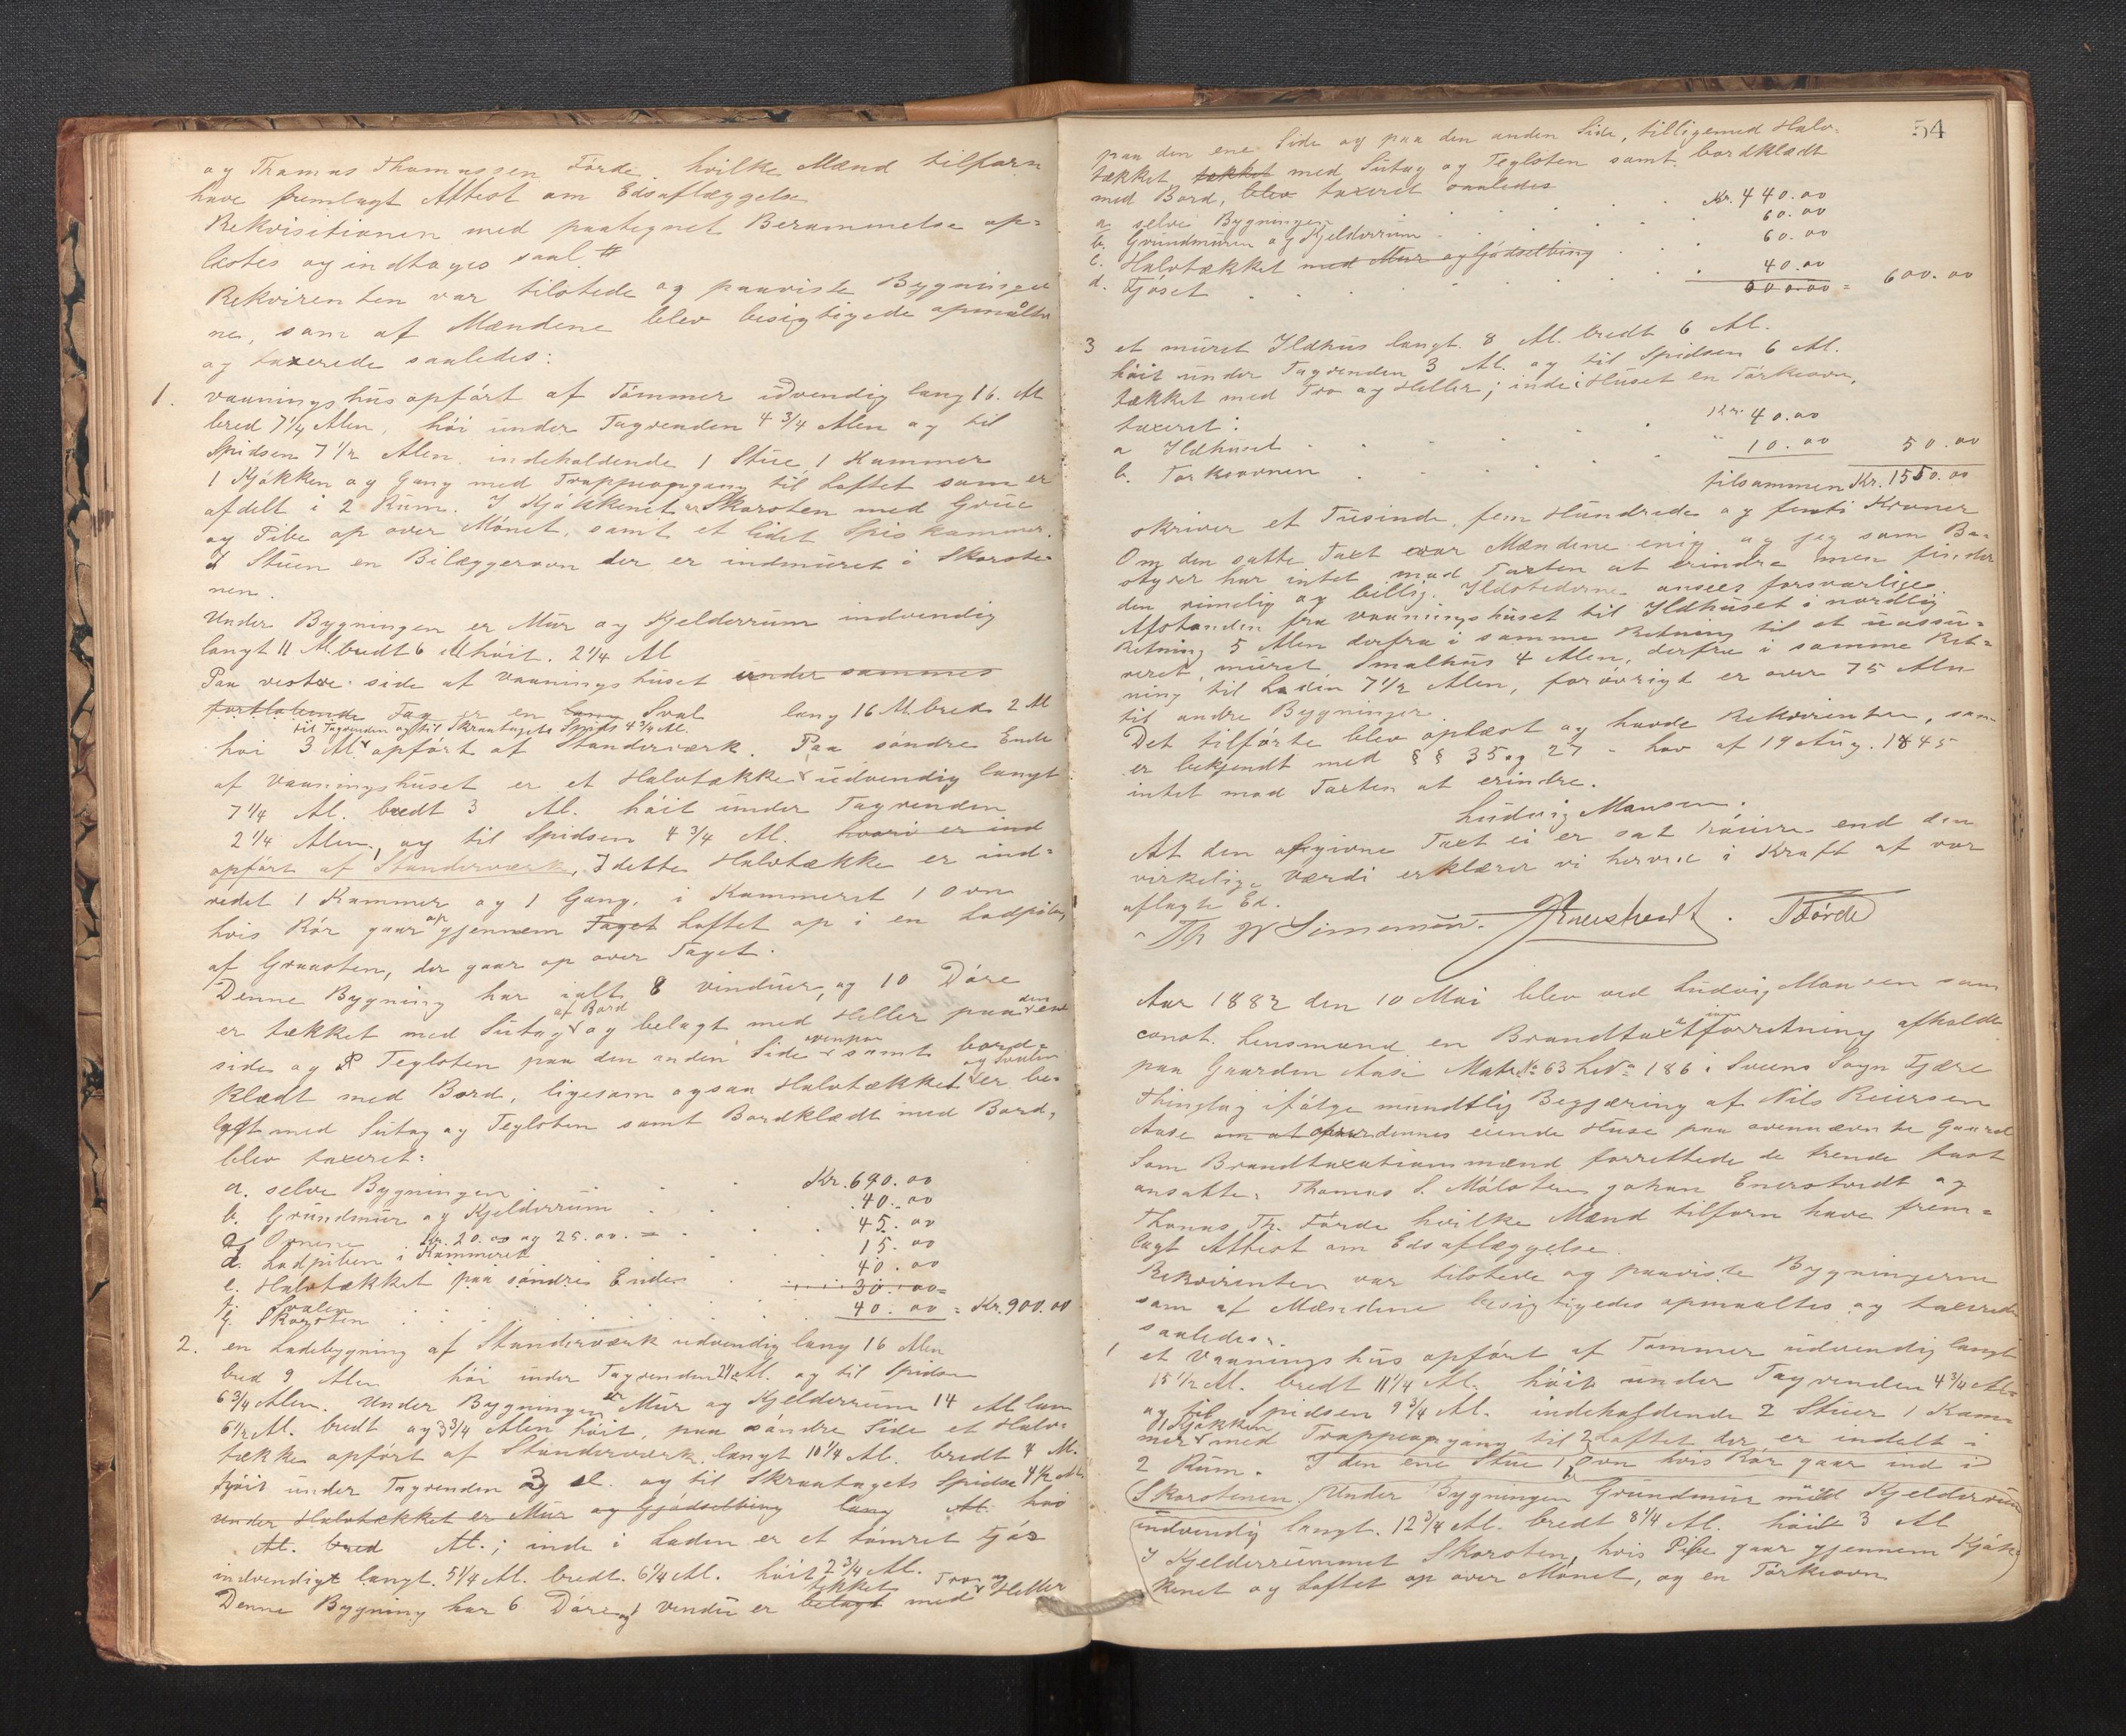 og Thomas Thomassen Förde, hvilke Mænd tilforn
have fremlagt Attest om Edsaflæggelse
Rekvisitionen med paategnet Berammelse op=
læstes og indtages saal #
Rekvirenten var tilstede og paaviste Bygninger
ne, som af Mændene blev besigtigede opmaalte
og taxerede saaledes:
1. vaaningshus opfört af Tömmer udvendig lang 16. Al
bred 7 1/4 Alen, höi under Tagrenden 4 3/4 Alen og til
Spidsen 7 1/2 Alen. indeholdende 1 Stue 1 Kammer
1 Kjökken og Gang med Trappeopgang til Loftet som er
afdelt i 2 Rum. I Kjökkenet er Skorsten med Grue
og Pibe op over Mönet, samt et lidet Spiskammer.
I Stuen en Bilæggerovn der er indmuret i Skorste-
nen.
Under Bygningen er Mur og Kjelderrum indvendig
langt 11 Al. bredt 6 Al höit. 2 1/4 Al
Paa vestre side af vaaningshuset under sammes
fortløbende Tag er en lang Sval lang 16 Al. bred 2 Al
til Tagrenden og til Skraatagets Spids 4 3/4 Al.
höi 3 Al opfört af Standerværk. Paa söndre Ende
af vaaningshuset er et Halvtække udvendig langt
7 1/4 Al. bredt 3 Al. höit under Tagrenden
2 1/4 Alen, og til Spidsen 4 3/4 Al. hvori er ind
opfört af Standerværk, I dette Halvtække er ind=
redet 1 Kammer og 1 Gang, i Kammeret 1 Ovn
hvis Rör gaar op gjennem Taget Loftet op i en Ladpibe,
af Graasten, der gaar op over Taget.
Denne Bygning har ialt 8 vinduer, og 10 Döre
er tækket med Sutag af Bord og belagt med Heller paa den ene
side og Teglsten paa den anden Side ovenpaa samt bord=
klædt med Bord, ligesom ogsaa Halvtækket og Svalen er be-
lagt med Sutag og Teglsten samt Bordklædt med Bord,
blev taxeret:
a. selve Bygningen . . . Kr. 690.00
b. Grundmur og Kjelderrum . . . 40.00
c. Ovnene Kr. 20.00 og 25.00. = . . 45.00
d. Ladpiben i Kammeret . . . 15.00
e. Halvtækket paa söndre Ende . . 40.00
f. Svalen . . . 30.00=
g. Skorsten . . . 40.00 = Kr. 900.00
2. en Ladebygning af Standerværk udvendig lang 16 Alen
bred 9 Alen höi under Tagrenden Al. og til Spidsen
6 3/4 Alen. Under Bygningen er Mur og Kjelderrum 14 Al lang
6 1/2 Al. bredt og 3 3/4 Alen höit, paa söndre Side et Halv-
tække opfört af Standerværk. langt 10 1/4 Al. bredt 4 Al.
höit under Tagrenden 3 Al. og til Skraatagets Spidse 4 1/2 Al.
under Halvtækket er Mur og Gjödselbing lang Al. höi
Al. bred Al.; inde i Laden er et tömret Fjös
indvendigt langt. 5 1/4 Al. bredt. 6 1/4 Al. höit 2 3/4 Al.
Denne Bygning har 6 Döre og 1 vindu er belagt tækket med Tro og Heller
54
paa den ene Side og paa den anden Side, tilligemed Halv-
tækket tækket med Sutag og Teglsten samt bordklædt
med Bord, blev taxeret saaledes
a selve Bygningen . . . Kr. 440.00
b. Grundmuren og Kjelderrum . . . 60.00
c. Halvtækket med Mur og Gjödselbing . . 60.00
d. Fjöset . . . 40.00
600.00 = 600.00
3 et muret Ildhus langt. 8 Al. bredt 6 Al.
höit under Tagrenden 3 Al. og til Spidsen 6 Al.
tækket med Tro og Heller; inde i Huset en Törkeovn,
taxeret:
a Ildhuset . . . Kr. 40.00
b. Törkeovnen . . . " 10.00 50.00
tilsammen Kr. 1550.00
skriver et Tusinde fem Hundrede og femti Kroner
Om den satte Taxt var Mændene enig og jeg som Be-
styrer har intet mod Taxten at erindre men finder
den rimelig og billig. Ildstederne ansees forsvarlige
Afstanden fra vaaningshuset til Ildhuset i nordlig
Retning 5 Alen derfra i samme Retning til et uassu-
reret, muret Smalhus 4 Alen, derfra i samme Ret-
ning til Laden 7 1/2 Alen, forövrigt er over 75 Alen
til andre Bygninger.
Det tilförte blev oplæst og havde Rekvirenten, som
er bekjendt med § § 35 og 27 i Lov af 19 Aug. 1845
intet mod Taxten at erindre.
Ludvig Monsen.
At den afgivne Taxt ei er sat höiere end den
virkelige Værdi erklærer vi herved i Kraft af vor
aflagte Ed.
Th Simonsen. . TFörde
Aar 1882 den 10 Mai blev ved Ludvig Monsen som
const. Lensmand en Brandtaxtforretning afholdt
paa Gaarden Aase Matr. No 63 LNo 186 i Sveens Sogn Fjære
Thinglag ifölge mundtlig Begjæring af Nils Reiersen
Aase om at dennes eiende Huse paa ovennævnte Gaard
Som Brandtaxationsmænd forrettede de trende fast
ansatte: Thomas S. Mölsten Johan Enerstvedt og
Thomas Th. Förde hvilke Mænd tilforn have frem=
lagt Attest om Edsaflæggelse.
Rekvirenten var tilstede og paaviste Bygningerne
som af Mændene besigtigedes opmaaltes og taxeredes
saaledes:
1 et Vaaningshus opfört af Tömmer udvendig langt
15 1/2 Al. bredt 11 1/4 Al. höit under Tagrenden 4 3/4 Al=
og til Spidsen 9 3/4 Al. indeholdende 2 Stuer 1 Kam-
mer 1 Kjökken med Trappeopgang til 2 Loftet der er indelt i
2 Rum. I den ene Stue 1 Ovn hvis Rör gaar ind i
Skorstenen. Under Bygningen Grundmur med Kjelderrum
indvendig langt. 12 3/4 Al. bredt 8 1/4 Al. höit 3 Al
I Kjelderrummet Skorsten, hvis Pibe gaar gjennem Kjök-
kenet og Loftet op over Mönet, og en Törkeovn